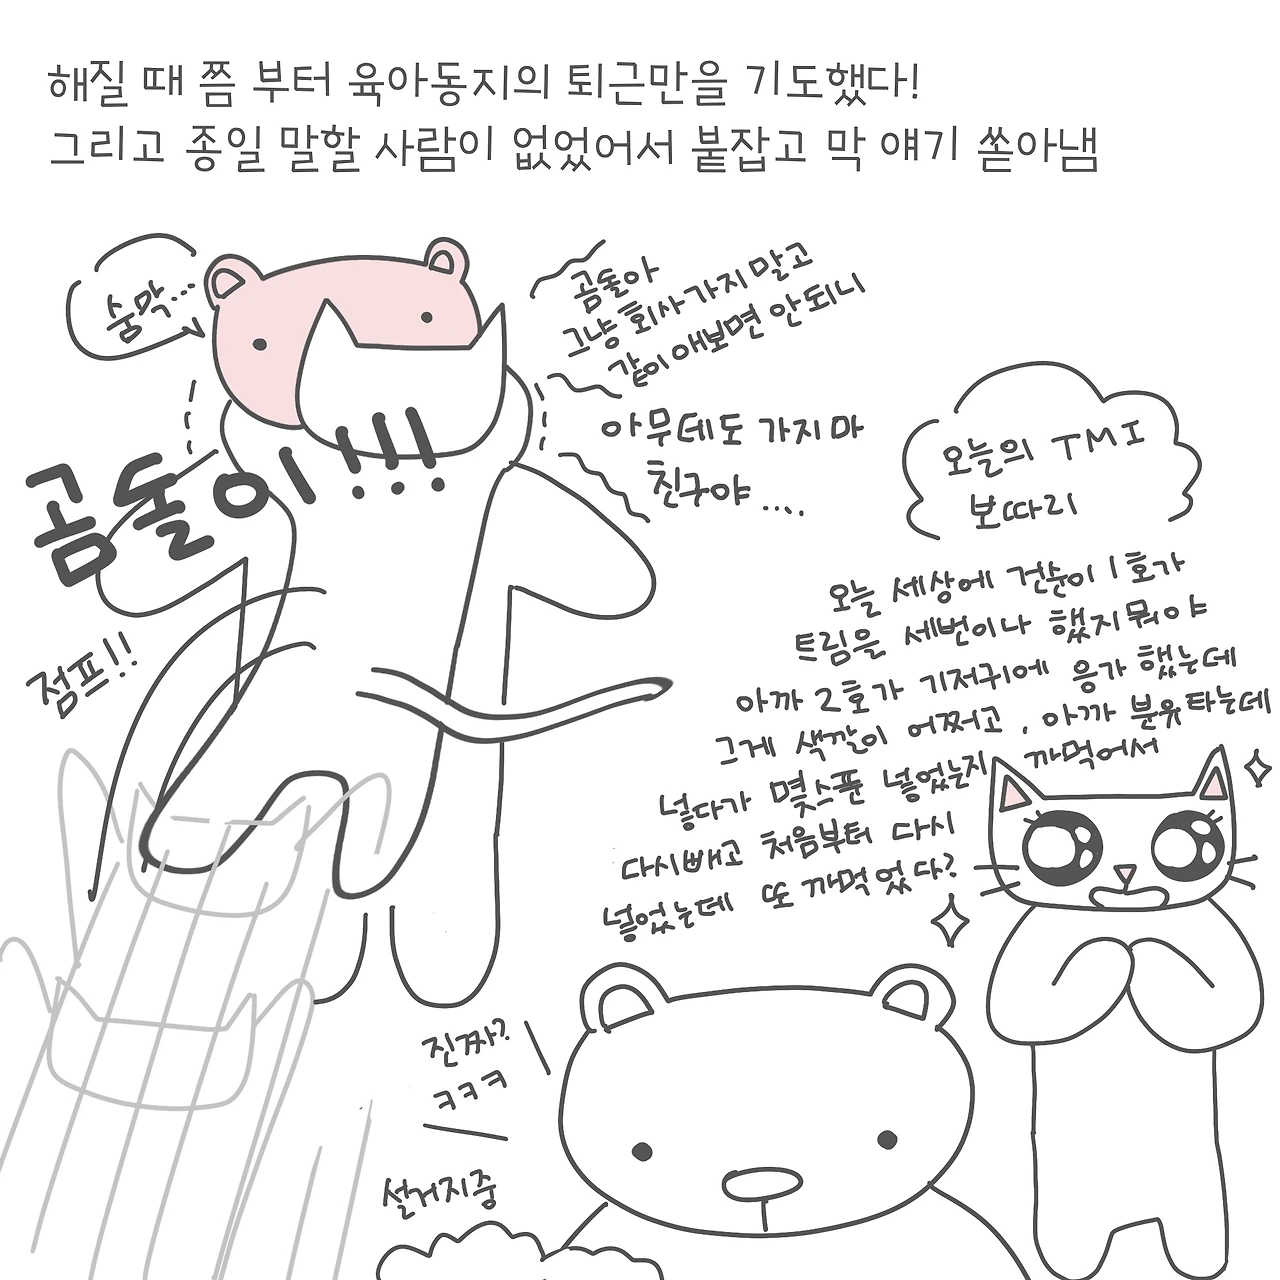 해질 때 쯤 부터 육아동지의 퇴근만을 기도했다!
그리고 종일 말할 사람이 없었어서 붙잡고 막 얘기 쏟아냄
숨막...
곰돌아
그냥 회사 가지 말고
같이 애보면 안되니
아무데도 가지마
친구야....
곰돌이!!!
점프!!
오늘의 TMI
보따리
오늘 세상에 건순이 1호가
트림을 세번이나 했지뭐야
아까 2호가 기저귀에 응가 했는데
그게 색깔이 어쩌고, 아까 분유타는데
넣다가 몇스푼 넣었는지 까먹어서
다시빼고 처음부터 다시
넣었는데 또 까먹었다?
진짜?
ㅋㅋㅋ
설거지중